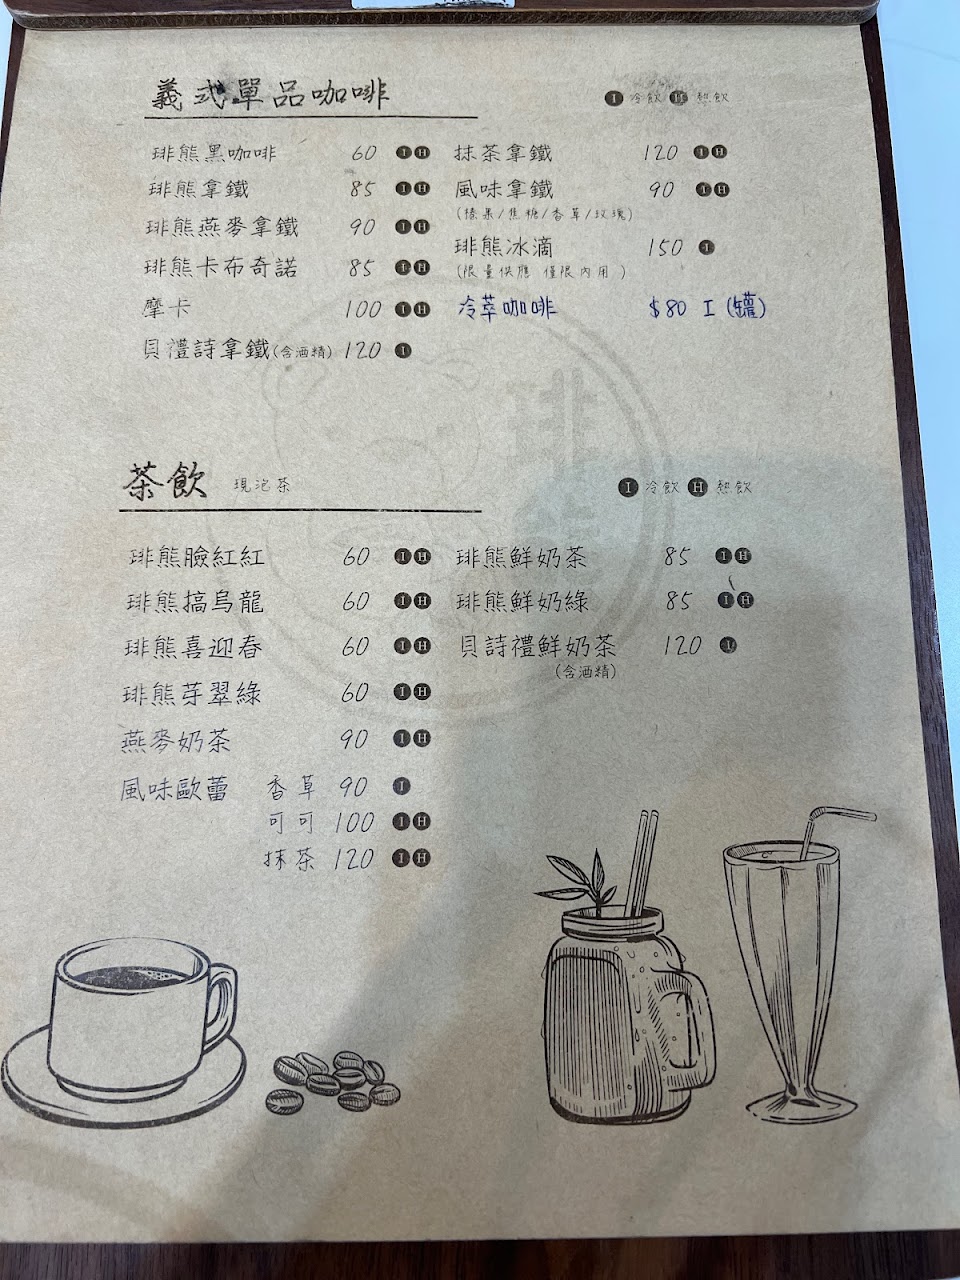 義式單品咖啡
I 冷飲 H 熱飲
琲熊黑咖啡 60 I H
琲熊拿鐵 85 I H
琲熊燕麥拿鐵 90 I H
琲熊卡布奇諾 85 I H
摩卡 100 I H
貝禮詩拿鐵(含酒精) 120 I
抹茶拿鐵 120 I H
風味拿鐵 90 I H
(榛果/焦糖/香草/玫瑰)
琲熊冰滴 150 I
(限量供應 僅限內用)
冷萃咖啡 $80 I (罐)
茶飲 現泡茶
I 冷飲 H 熱飲
琲熊臉紅紅 60 I H
琲熊搞烏龍 60 I H
琲熊喜迎春 60 I H
琲熊芽翠綠 60 I H
燕麥奶茶 90 I H
風味歐蕾 香草 90 I
可可 100 I H
抹茶 120 I H
琲熊鮮奶茶 85 I H
琲熊鮮奶綠 85 I H
貝詩禮鮮奶茶 120 I
(含酒精)